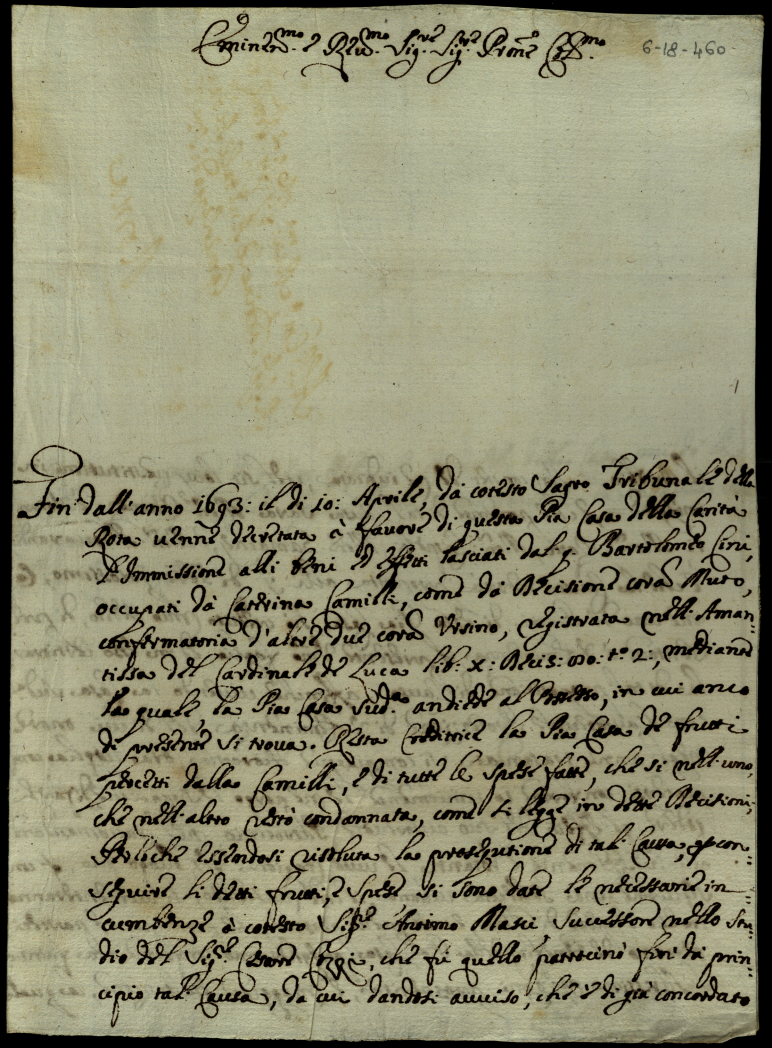 Eminen.mo e Reu.mo Sig.re Sig.re Prone Col.mo
6-18-460
1
Fin' dall'anno 1693: il dì 10: Aprile, dà cotesto Sagro Tribunale della
Rota uenne decretata à fauore di questa Pia Casa della Carità
l'Immissione alli beni ed effetti lasciati dal q. Bartolomeo Cini,
occupati dà Caterina Camilli, come dà Decisione corã Muto,
confirmatoria d'altre due corã Ursino, registrata nell'Aman-
tissa del Cardinale de Luca lib: X: Decis: to: 2:, mediante
la quale la Pia Casa sud.a andiede al Possesso, in cui anco
di presente si troua. Resta Creditrice la Pia Casa de frutti
percetti dalla Camilli, e di tutte le spese fatte, che sì nell'uno,
che nell'altro restò condannata, come si legge in dette Decisioni;
Perloche essendosi risoluta la prosecutione di tal' Causa, con-
seguire li detti frutti, e spese si sono date le necessarie in-
cumbenze à cotesto Sig.re Antimo Masci Successore nello stu-
dio del Sig.re Cesare, che fù quello patrocinò fin' dà prin-
cipio tal' Causa, da cui dandosi auuiso, che è di già concordato